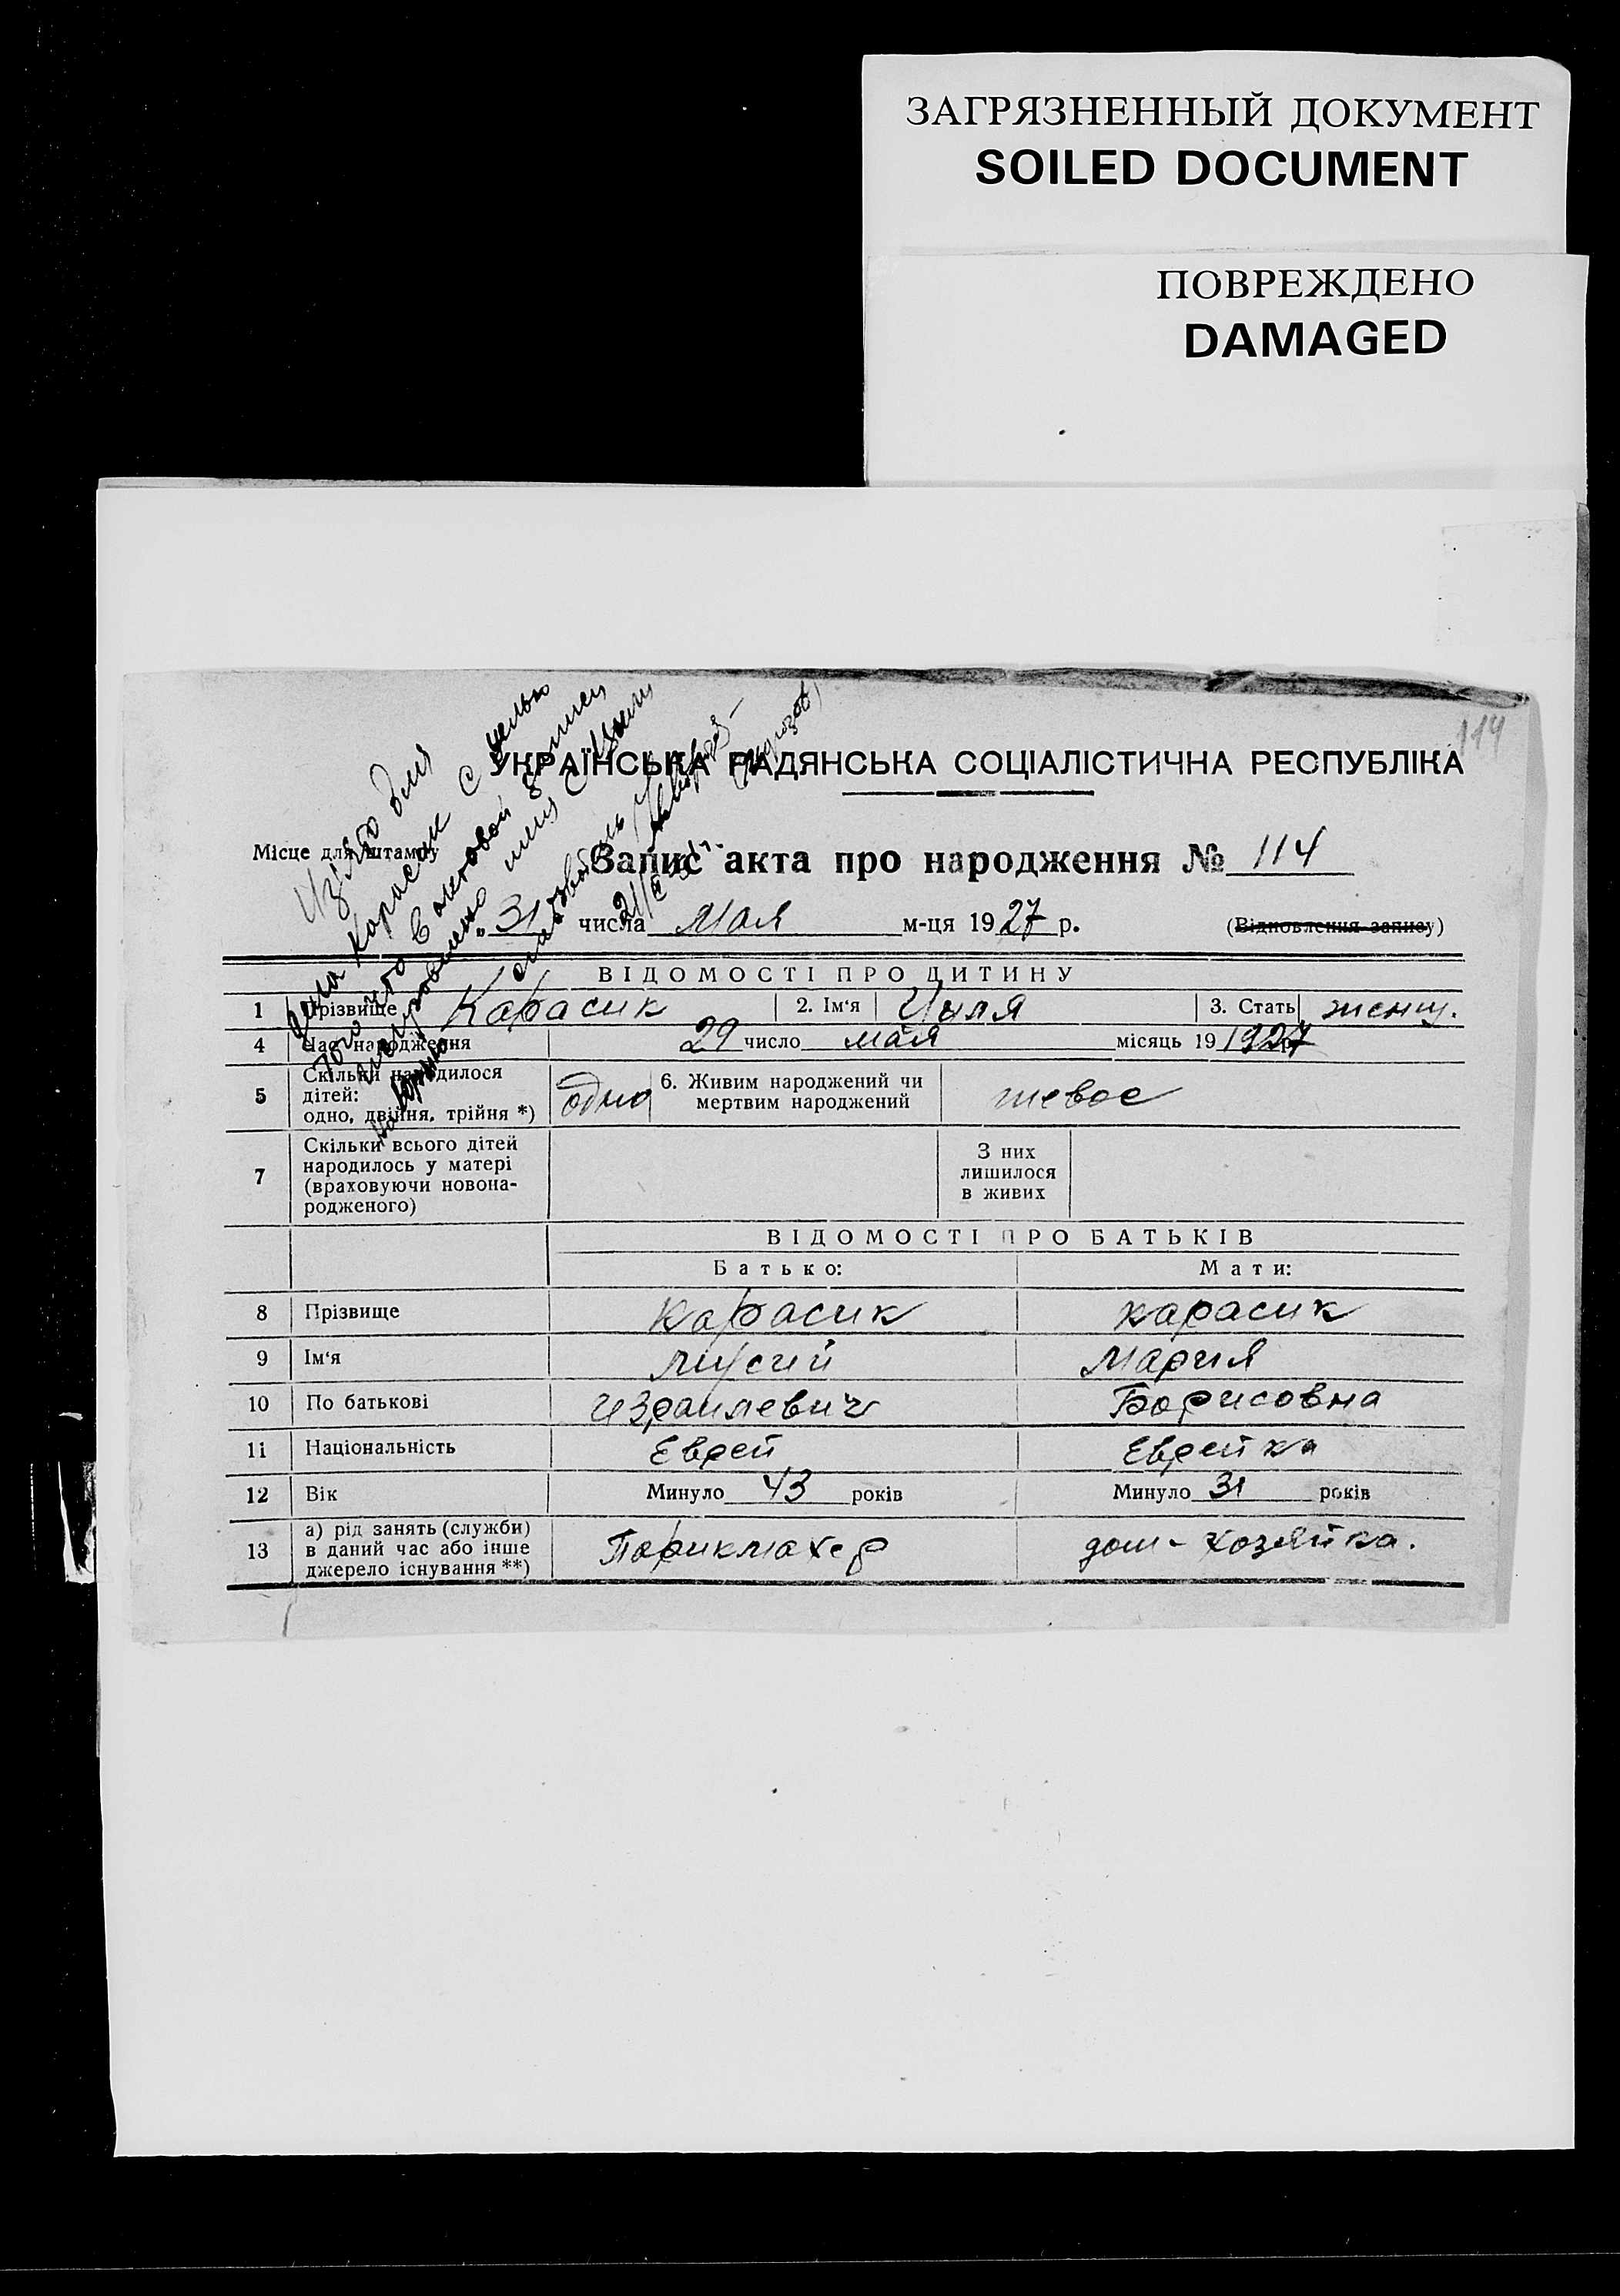 ЗАГРЯЗНЕННЫЙ ДОКУМЕНТ
SOILED DOCUMENT
ПОВРЕЖДЕНО
DAMAGED
114
УКРАЇНСЬКА РАДЯНСЬКА СОЦІАЛІСТИЧНА РЕСПУБЛІКА
Місце для штампу
Запис акта про народження № 114
„31 числа мая м-ця 1927 р. (Відновлення запису)
Изято для
дела Карасик с целью
того что в актовой записи
исправлено имя с Цили
ВІДОМОСТІ ПРО ДИТИНУ
1 Прізвище Карасик 2. Ім‘я Циля 3. Стать женщ.
4 Час народження 29 число мая місяць 19 1927 р
5 Скільки народилося дітей: одно, двійня, трійня *) одно 6. Живим народжений чи мертвим народжений живое
7 Скільки всього дітей народилось у матері (враховуючи новонародженого) З них лишилося в живих
ВІДОМОСТІ ПРО БАТЬКІВ
Батько: Мати:
8 Прізвище Карасик Карасик
9 Ім‘я Мусий Мария
10 По батькові Израилевич Борисовна
11 Національність Еврей Еврейка
12 Вік Минуло 43 років Минуло 31 років
13 а) рід занять (служби) в даний час або інше джерело існування **) Парикмахер дом-хозяйка.